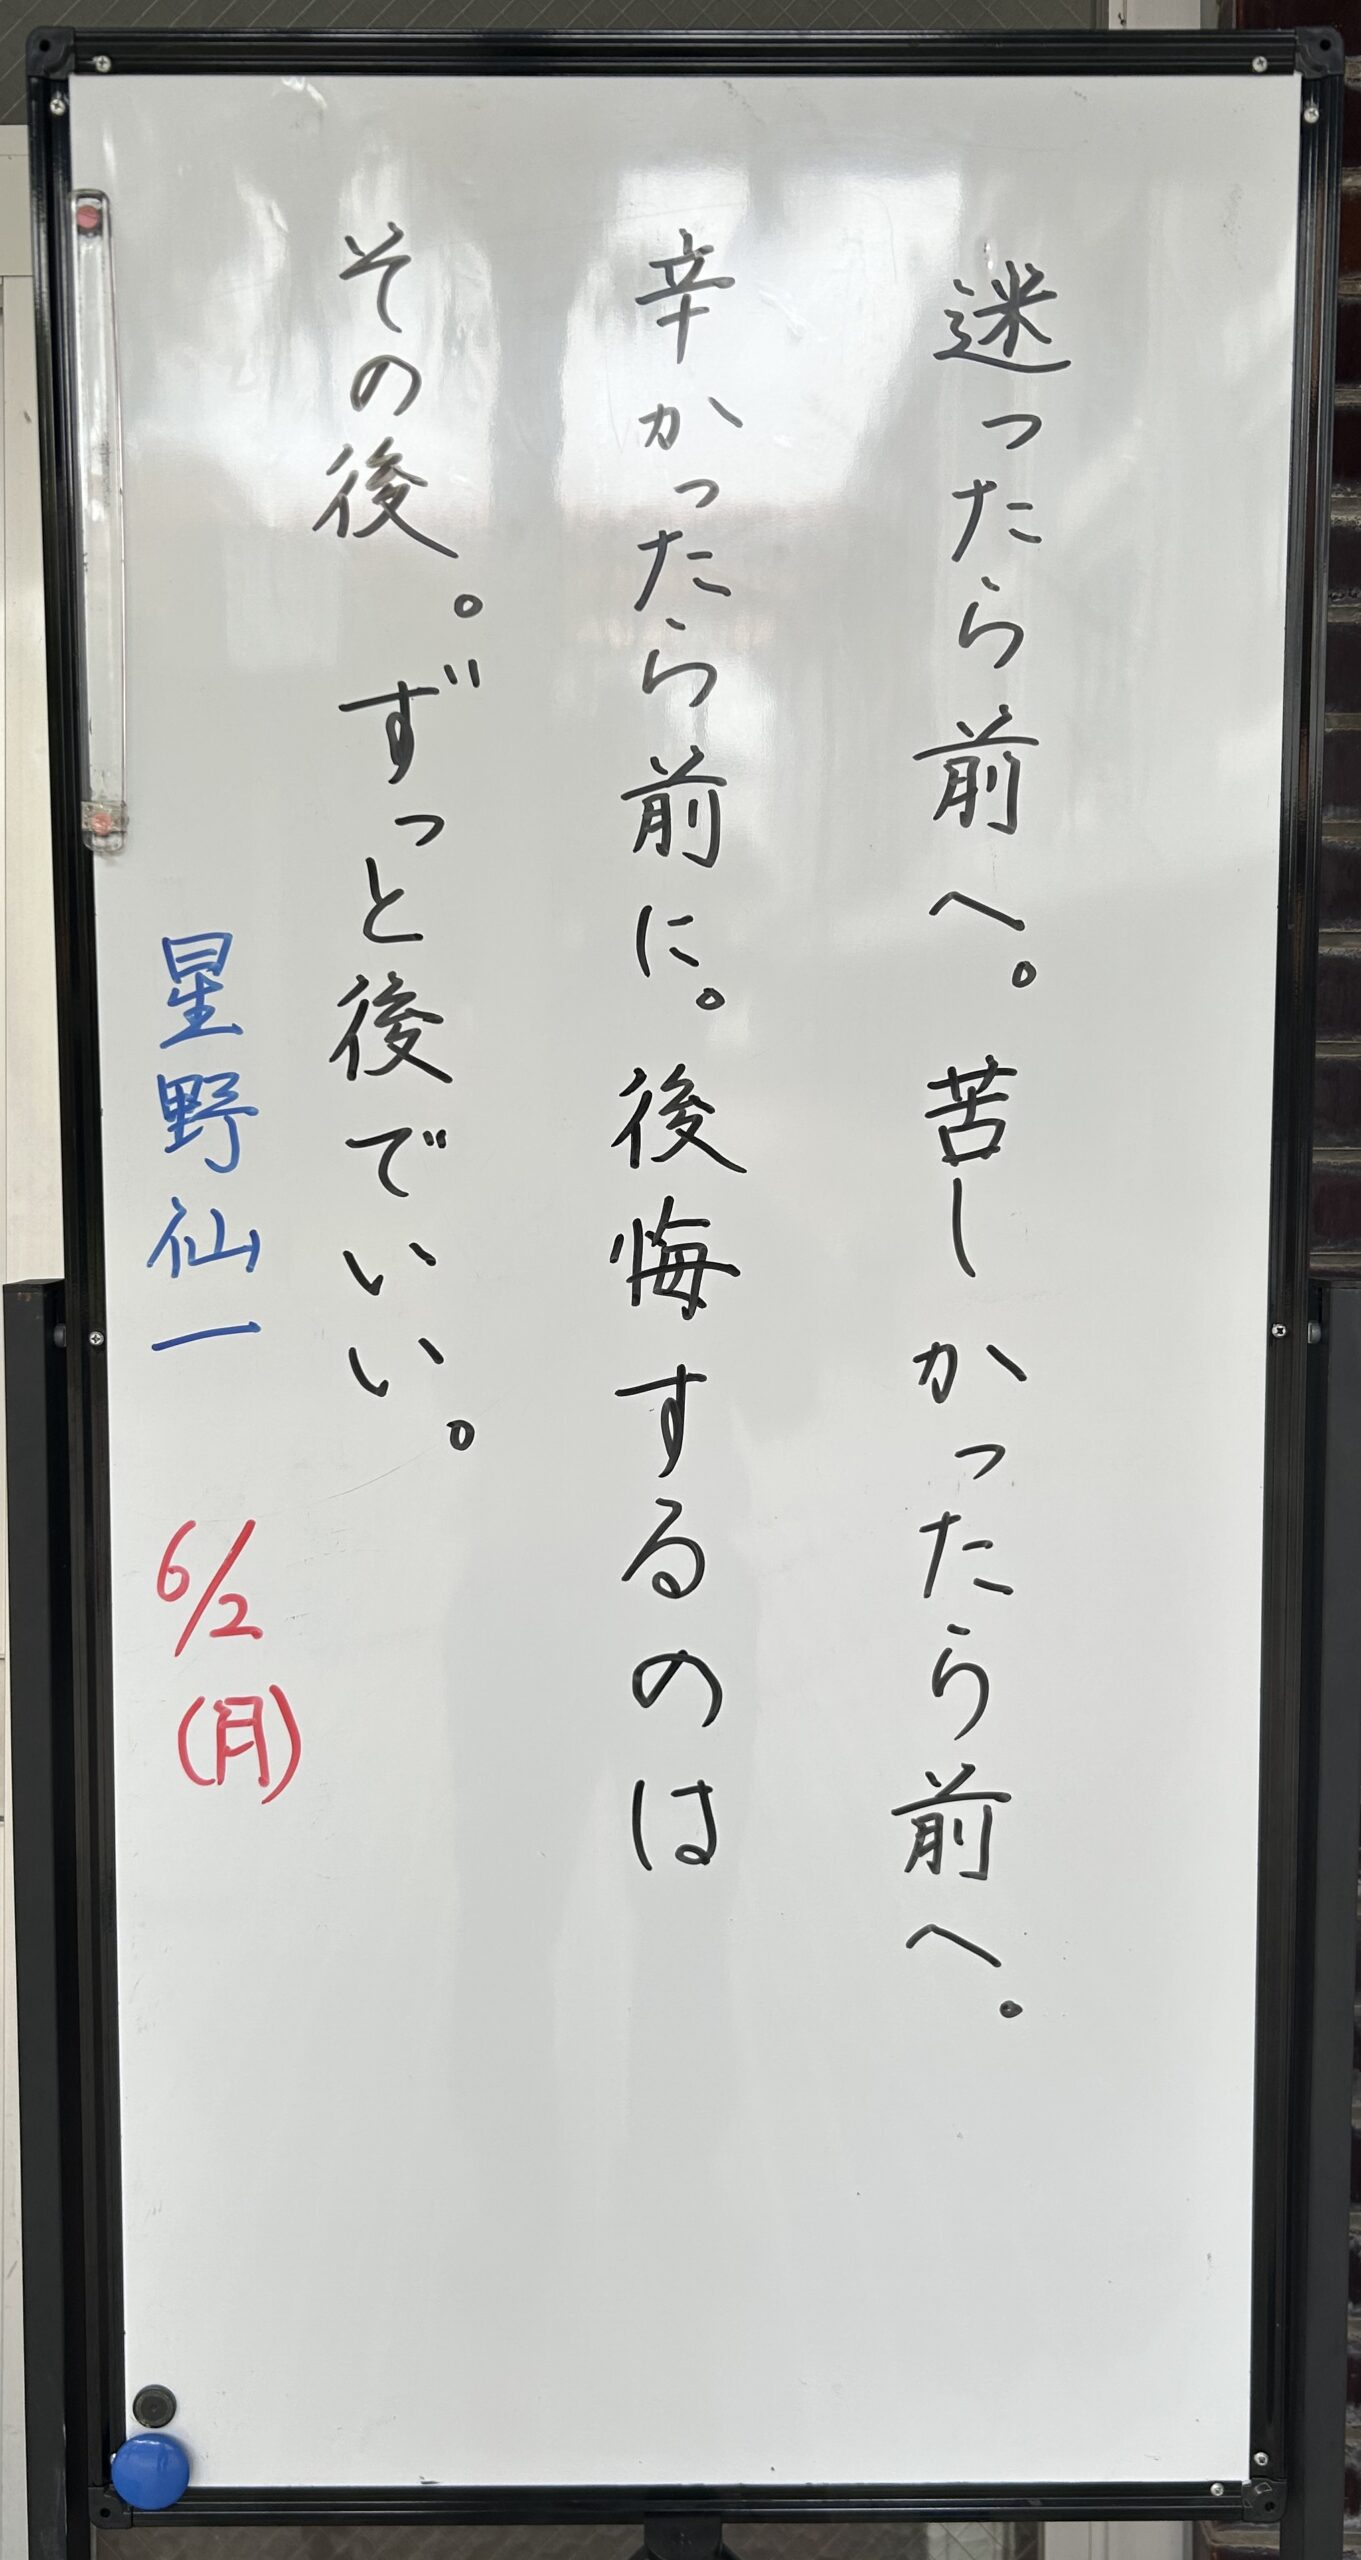 迷ったら前へ。苦しかったら前へ。
辛かったら前に。後悔するのは
その後。ずっと後でいい。
星野仙一 6/2(月)